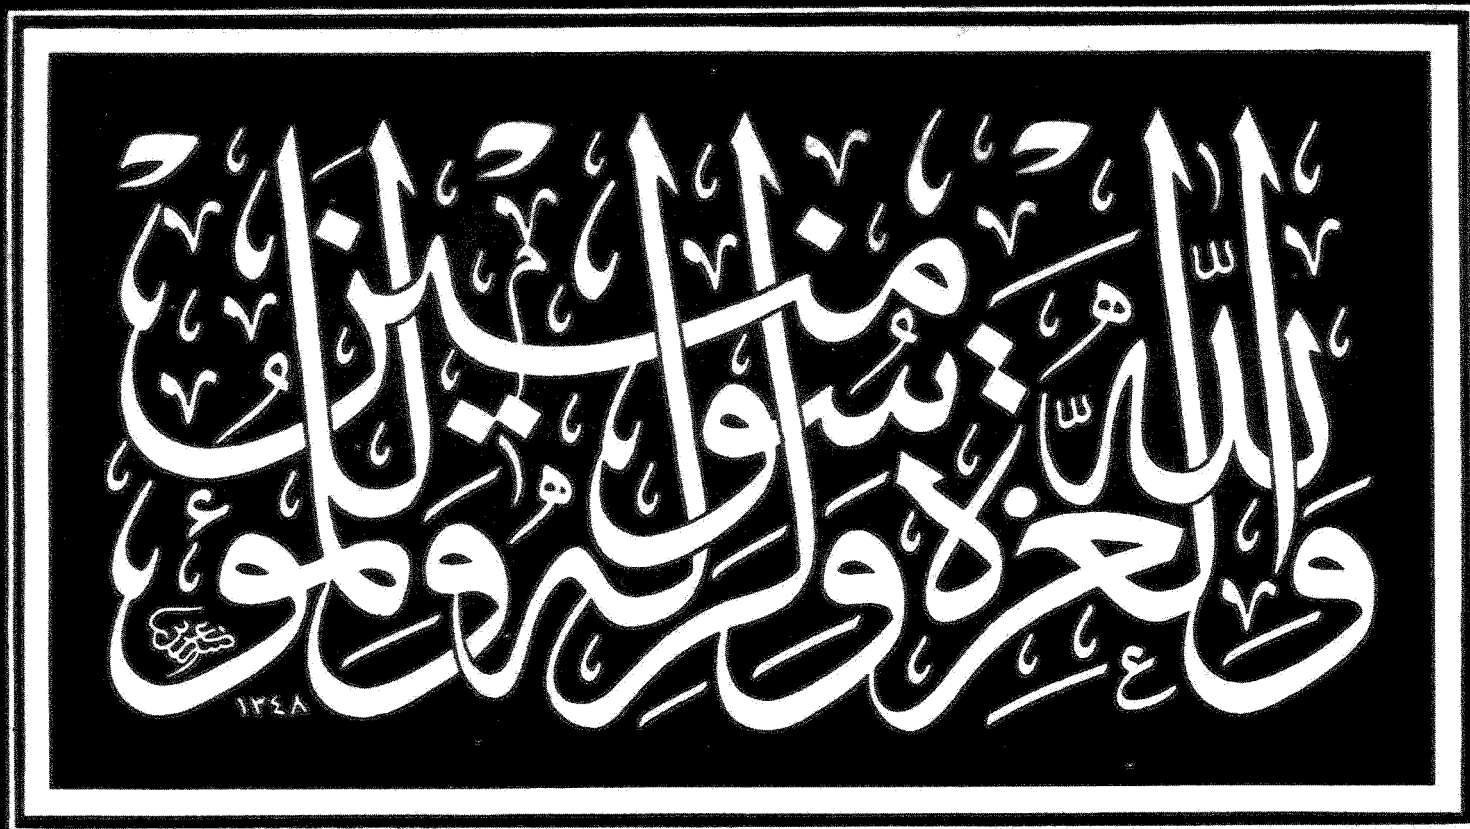 ولله العزة ولرسوله وللمؤمنين
١٣٤٨